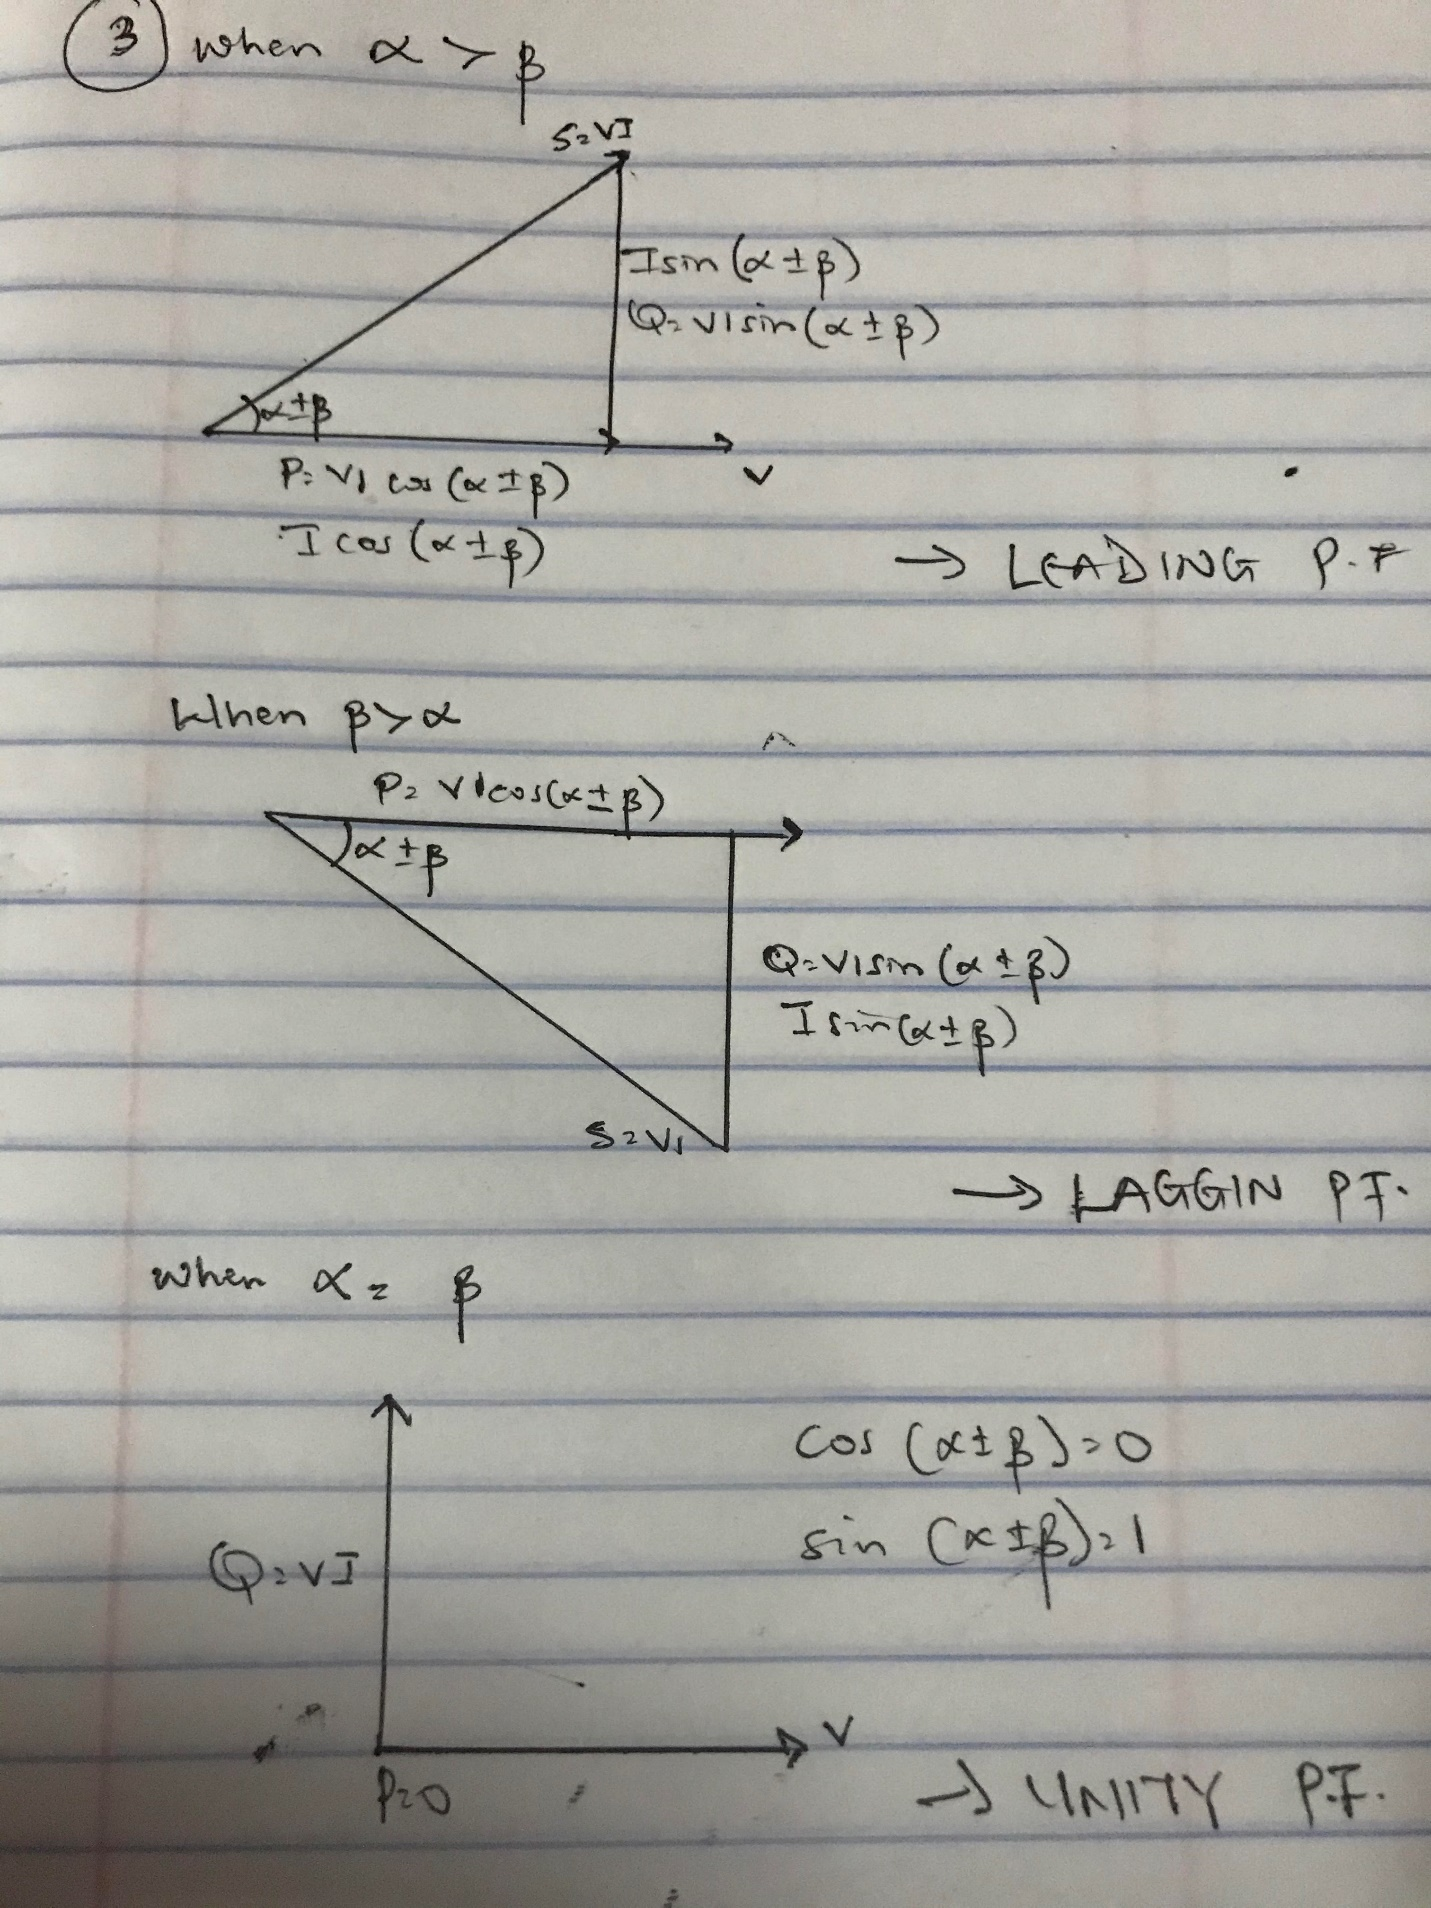 3 when α > β
S=VI
I sin (α ± β)
Q=VI sin (α ± β)
α±β
V
P=VI cos (α ± β)
I cos (α ± β)
→ LEADING P.F
When β > α
P=VI cos(α ± β)
α ± β
Q=VI sin (α ± β)
I sin (α ± β)
S=VI
→ LAGGIN P F.
when α = β
cos (α ± β) = 0
sin (α ± β) = 1
Q=VI
V
P=0
→ UNITY P.F.